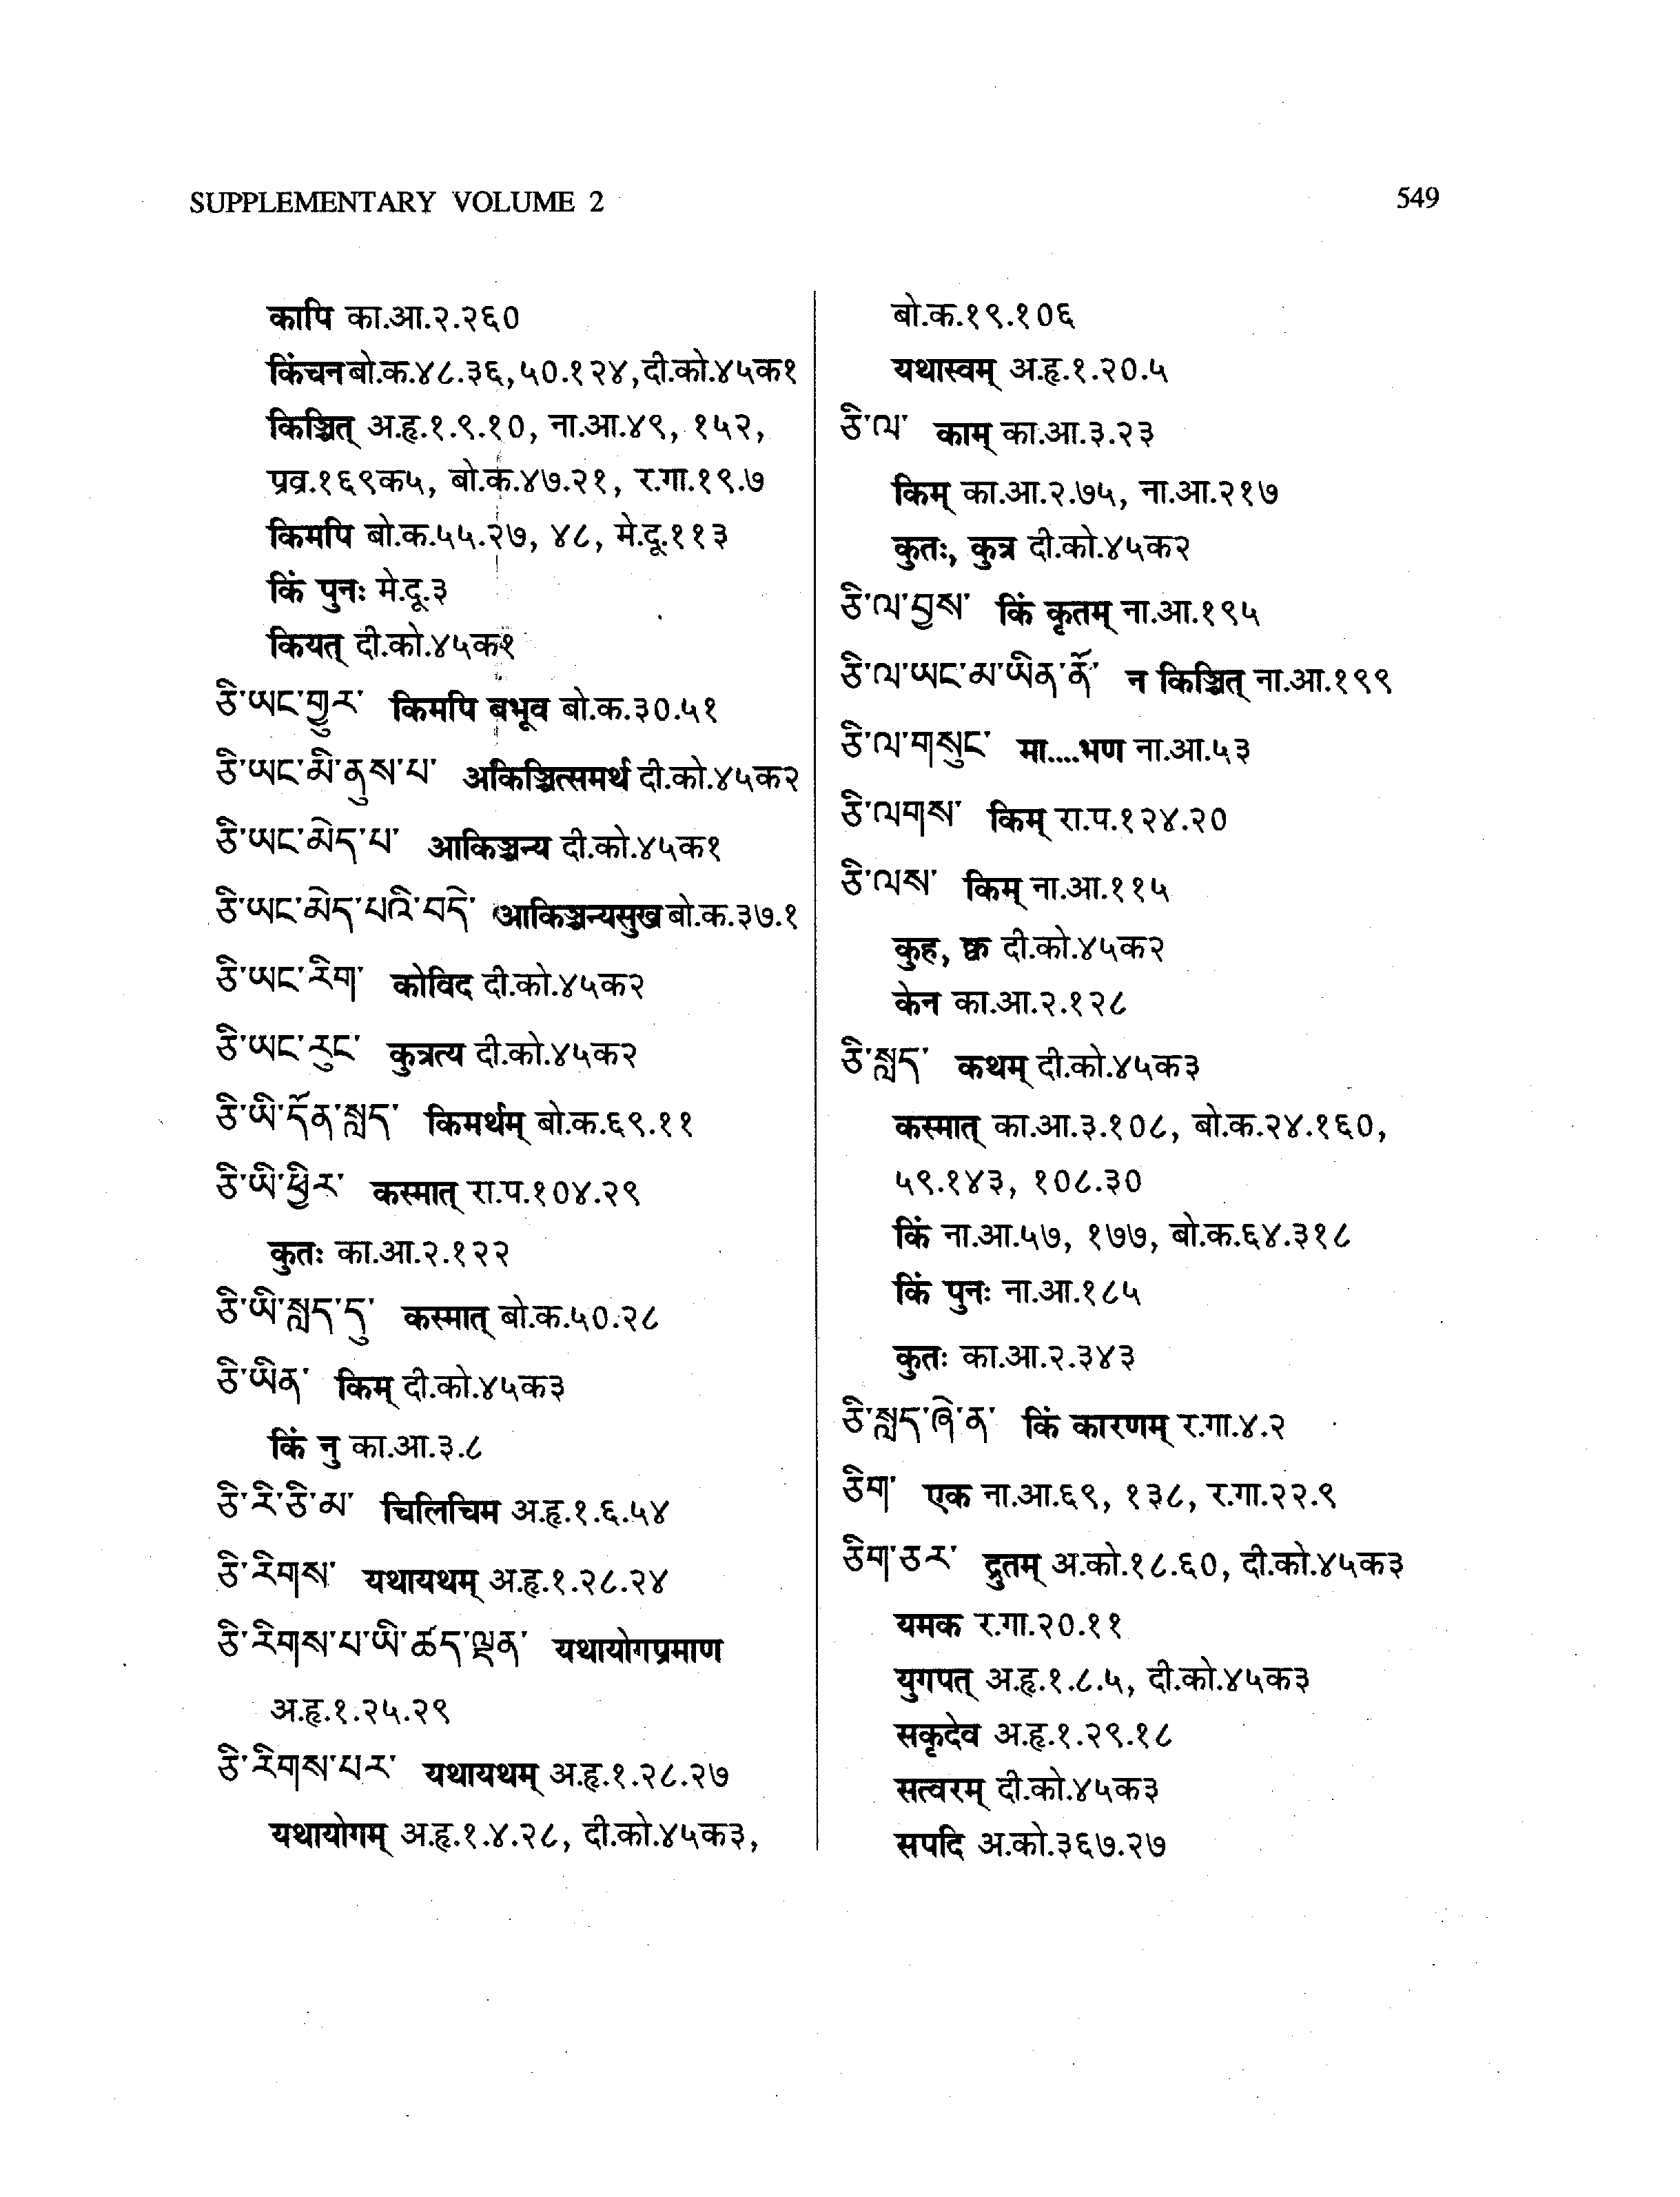 SUPPLEMENTARY VOLUME 2
549
कापि का.आ.२.२६०
किंचन बो.क.४८.३६,५०.१२४,दी.को.४५क१
किञ्चित् अ.हृ.१.९.१०, ना.आ.४९, १५२,
प्रव्र.१६९क५, बो.क.४७.२१, र.गा.१९.७
किमपि बो.क.५५.२७, ४८, मे.दू.११३
किं पुनः मे.दू.३
कियत् दी.को.४५क१
ཅི་ཡང་གྱུར་ किमपि बभूव बो.क.३०.५१
ཅི་ཡང་མི་ནུས་པ་ अकिञ्चित्समर्थ दी.को.४५क२
ཅི་ཡང་མེད་པ་ आकिञ्चन्य दी.को.४५क१
ཅི་ཡང་མེད་པའི་བདེ་ आकिञ्चन्यसुख बो.क.३७.१
ཅི་ཡང་རིག་ कोविद दी.को.४५क२
ཅི་ཡང་རུང་ कुत्रत्य दी.को.४५क२
ཅི་ཡི་དོན་སླད་ किमर्थम् बो.क.६९.११
ཅི་ཡི་ཕྱིར་ कस्मात् रा.प.१०४.२९
कुतः का.आ.२.१२२
ཅི་ཡི་སླད་དུ་ कस्मात् बो.क.५०.२८
ཅི་ཡིན་ किम् दी.को.४५क३
किं नु का.आ.३.८
ཅི་རི་ཅི་མ་ चिलिचिम अ.हृ.१.६.५४
ཅི་རིགས་ यथायथम् अ.हृ.१.२८.२४
ཅི་རིགས་པ་ཡི་ཚད་ལྡན་ यथायोगप्रमाण
अ.हृ.१.२५.२९
ཅི་རིགས་པར་ यथायथम् अ.हृ.१.२८.२७
यथायोगम् अ.हृ.१.४.२८, दी.को.४५क३,
बो.क.१९.१०६
यथास्वम् अ.हृ.१.२०.५
ཅི་ལ་ काम् का.आ.३.२३
किम् का.आ.२.७५, ना.आ.२१७
कुतः, कुत्र दी.को.४५क२
ཅི་ལ་བྱས་ किं कृतम् ना.आ.१९५
ཅི་ལ་ཡང་མ་ཡིན་ནོ་ न किञ्चित् ना.आ.१९९
ཅི་ལ་གསུང་ मा....भण ना.आ.५३
ཅི་ལགས་ किम् रा.प.१२४.२०
ཅི་ལས་ किम् ना.आ.११५
कुह, क्व दी.को.४५क२
केन का.आ.२.१२८
ཅི་སླད་ कथम् दी.को.४५क३
कस्मात् का.आ.३.१०८, बो.क.२४.१६०,
५९.१४३, १०८.३०
किं ना.आ.५७, १७७, बो.क.६४.३१८
किं पुनः ना.आ.१८५
कुतः का.आ.२.३४३
ཅི་སླད་ཞེ་ན་ किं कारणम् र.गा.४.२
ཅིག་ एक ना.आ.६९, १३८, र.गा.२२.९
ཅིག་ཅར་ द्रुतम् अ.को.१८.६०, दी.को.४५क३
यमक र.गा.२०.११
युगपत् अ.हृ.१.८.५, दी.को.४५क३
सकृदेव अ.हृ.१.२९.१८
सत्वरम् दी.को.४५क३
सपदि अ.को.३६७.२७